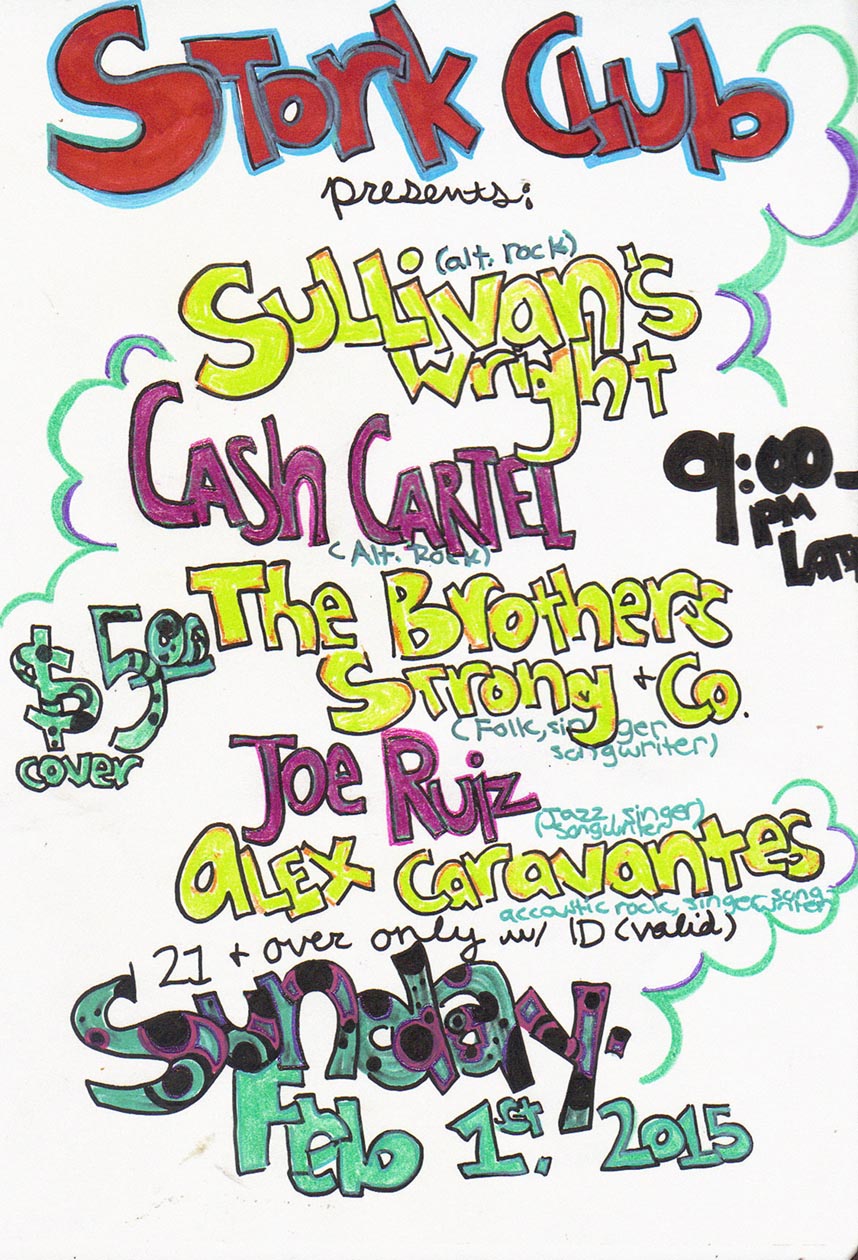 Stork Club
presents:
(alt. rock)
Sullivan's
Wright
Cash Cartel
(Alt. Rock)
9:00-
PM
The Brothers
Strong + Co.
(Folk, singer
songwriter)
$5.00
cover
Joe Ruiz
(Jazz, singer)
songwriter
Alex Caravantes
accoustic rock, singer song-
writer
21 + over only w/ ID (valid)
Sunday.
Feb 1st. 2015